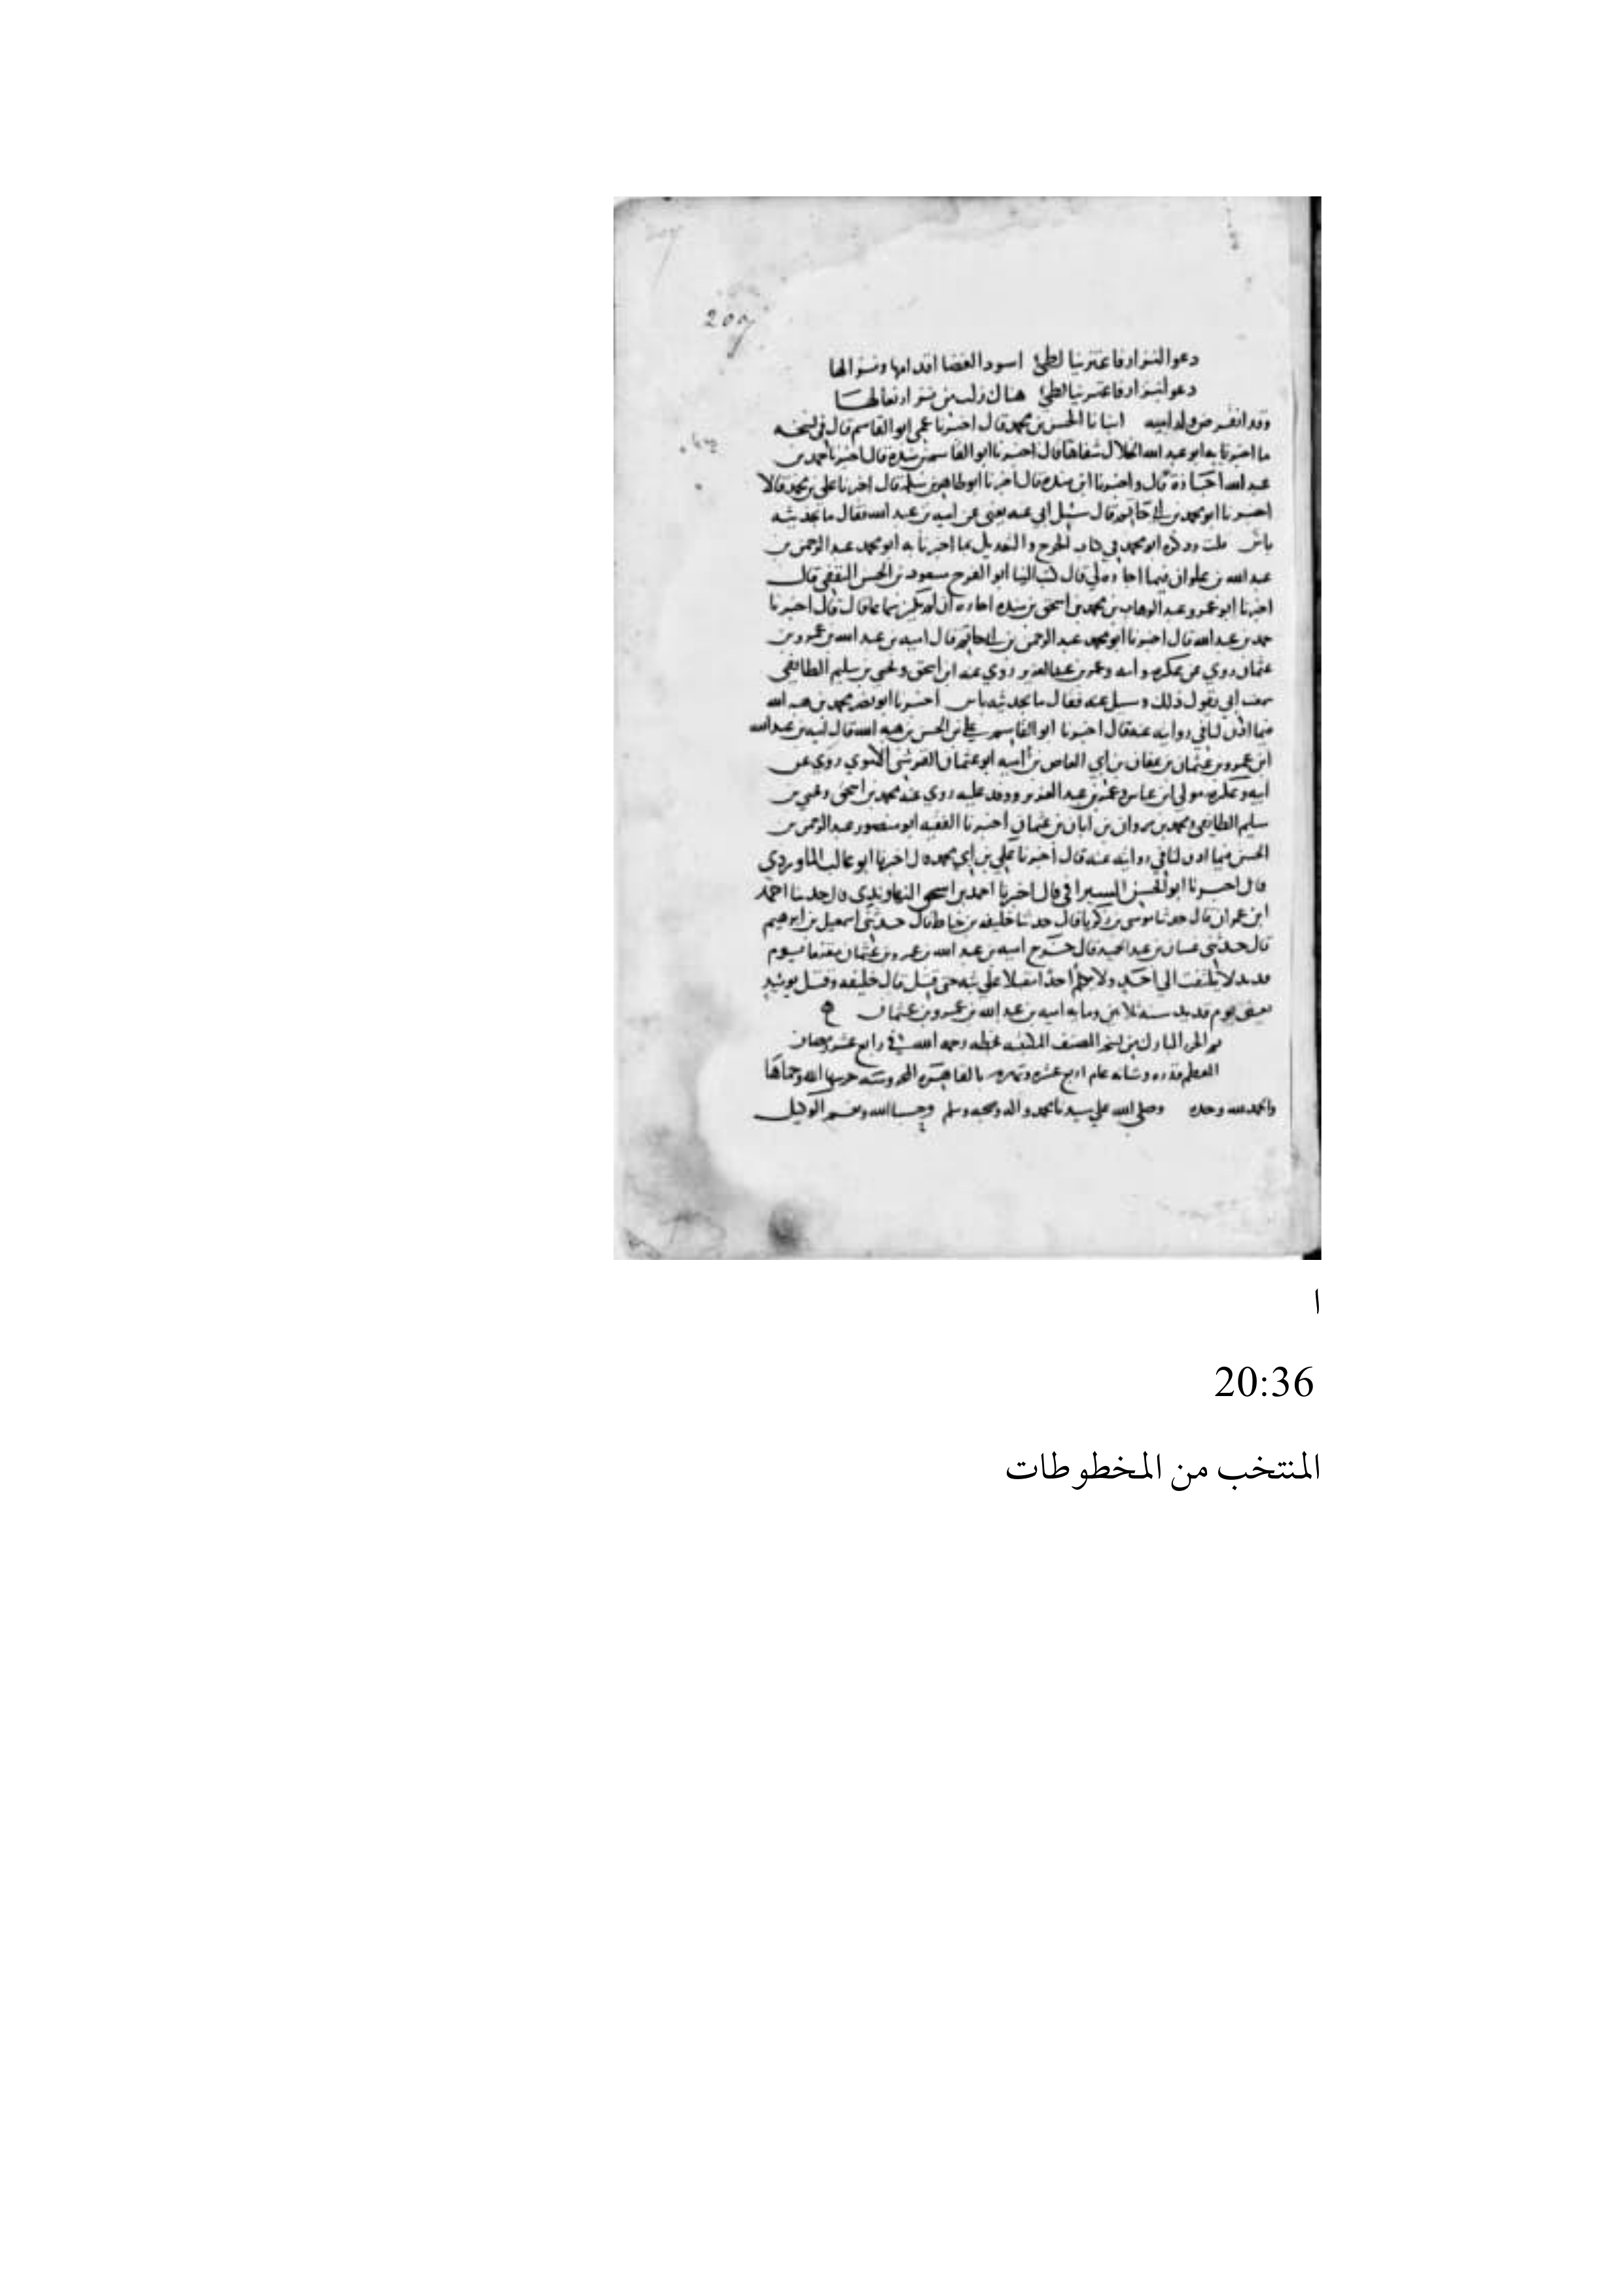 207
دعوا لنزار فاعترينا لطي اسود الغضا اقدامها ونزالها
دعوا لنزار فاعترينا لطي هنالك زلت من نزار نعالها
وقد انقرض ولد ابيه انبانا الحسن بن محمد قال اخبرنا عمي ابو القاسم قال في نسخه
ما اخبرنا به ابو عبد الله الخلال شفاها قال اخبرنا ابو القاسم بن منده قال اخبرنا حمد بن
عبد الله اجازة قال واخبرنا ابن منده قال اخبرنا ابو طاهر بن سلمه قال اخبرنا علي بن محمد قالا
اخبرنا ابو محمد بن ابي حاتم قال سئل ابي عنه يعني عن اميه بن عبد الله فقال ما بحديثه
باس قلت وذكره ابو محمد في كتاب الجرح والتعديل بما اخبرنا به ابو محمد عبد الرحمن بن
عبد الله بن علوان فيما اجازه لي قال كتب الينا ابو الفرج مسعود بن الحسن الثقفي قال
اخبرنا ابو عمرو عبد الوهاب بن محمد بن اسحق بن منده اجازه ان لم يكن سماعا قال قال اخبرنا
حمد بن عبد الله قال اخبرنا ابو محمد عبد الرحمن بن ابي حاتم قال اميه بن عبد الله بن عمرو بن
عثمان روي عن عكرمه وابيه وعمر بن عبد العزيز روي عنه ابن اسحق ويحيي بن سليم الطائفي
سمعت ابي يقول ذلك وسيل عنه فقال ما بحديثه باس اخبرنا ابو نصر محمد بن هبه الله
فيما اذن لنا في روايته عنه قال اخبرنا ابو القاسم علي بن الحسن بن هبه الله قال اميه بن عبد الله
ابن عمرو بن عثمان بن عفان بن ابي العاص بن اميه ابو عثمان القرشي الاموي روي عن
ابيه وعكرمه مولي ابن عباس وعمر بن عبد العزيز ووفد عليه روي عنه محمد بن اسحق ويحيي بن
سليم الطايفي ومحمد بن مروان بن ابان بن عثمان اخبرنا الفقيه ابو منصور عبد الرحمن بن
الحسن فيما اذن لنا في روايته عنه قال اخبرنا علي بن ابي محمد قال اخبرنا ابو غالب الماوردي
قال اخبرنا ابو الحسن السيرافي قال اخبرنا احمد بن اسحق النهاوندي قال حدثنا احمد
ابن عمران قال حدثنا موسي بن زكريا قال حدثنا خليفه بن خياط قال حدثني اسمعيل بن ابرهيم
قال حدثني غسان بن عبد الحميد قال خرج اميه بن عبد الله بن عمرو بن عثمان مقنعا يوم
قديد لا يلتفت الي احد ولا يكلم احدا مقبلا علي بثه حتي قتل قال خليفه وقتل يومئذ
يعني يوم قديد سنه ثلاثين ومايه اميه بن عبد الله بن عمرو بن عثمان
تم الجزء المبارك من نسخه المصنف بخطه رحمه الله في رابع عشر رمضان
المعظم قدره وشانه عام اربع عشره بالقاهره المحروسه حرسها الله وحماها
والحمد لله وحده وصلي الله علي سيدنا محمد واله وصحبه وسلم وحسبنا الله ونعم الوكيل
ا
20:36
المنتخب من المخطوطات